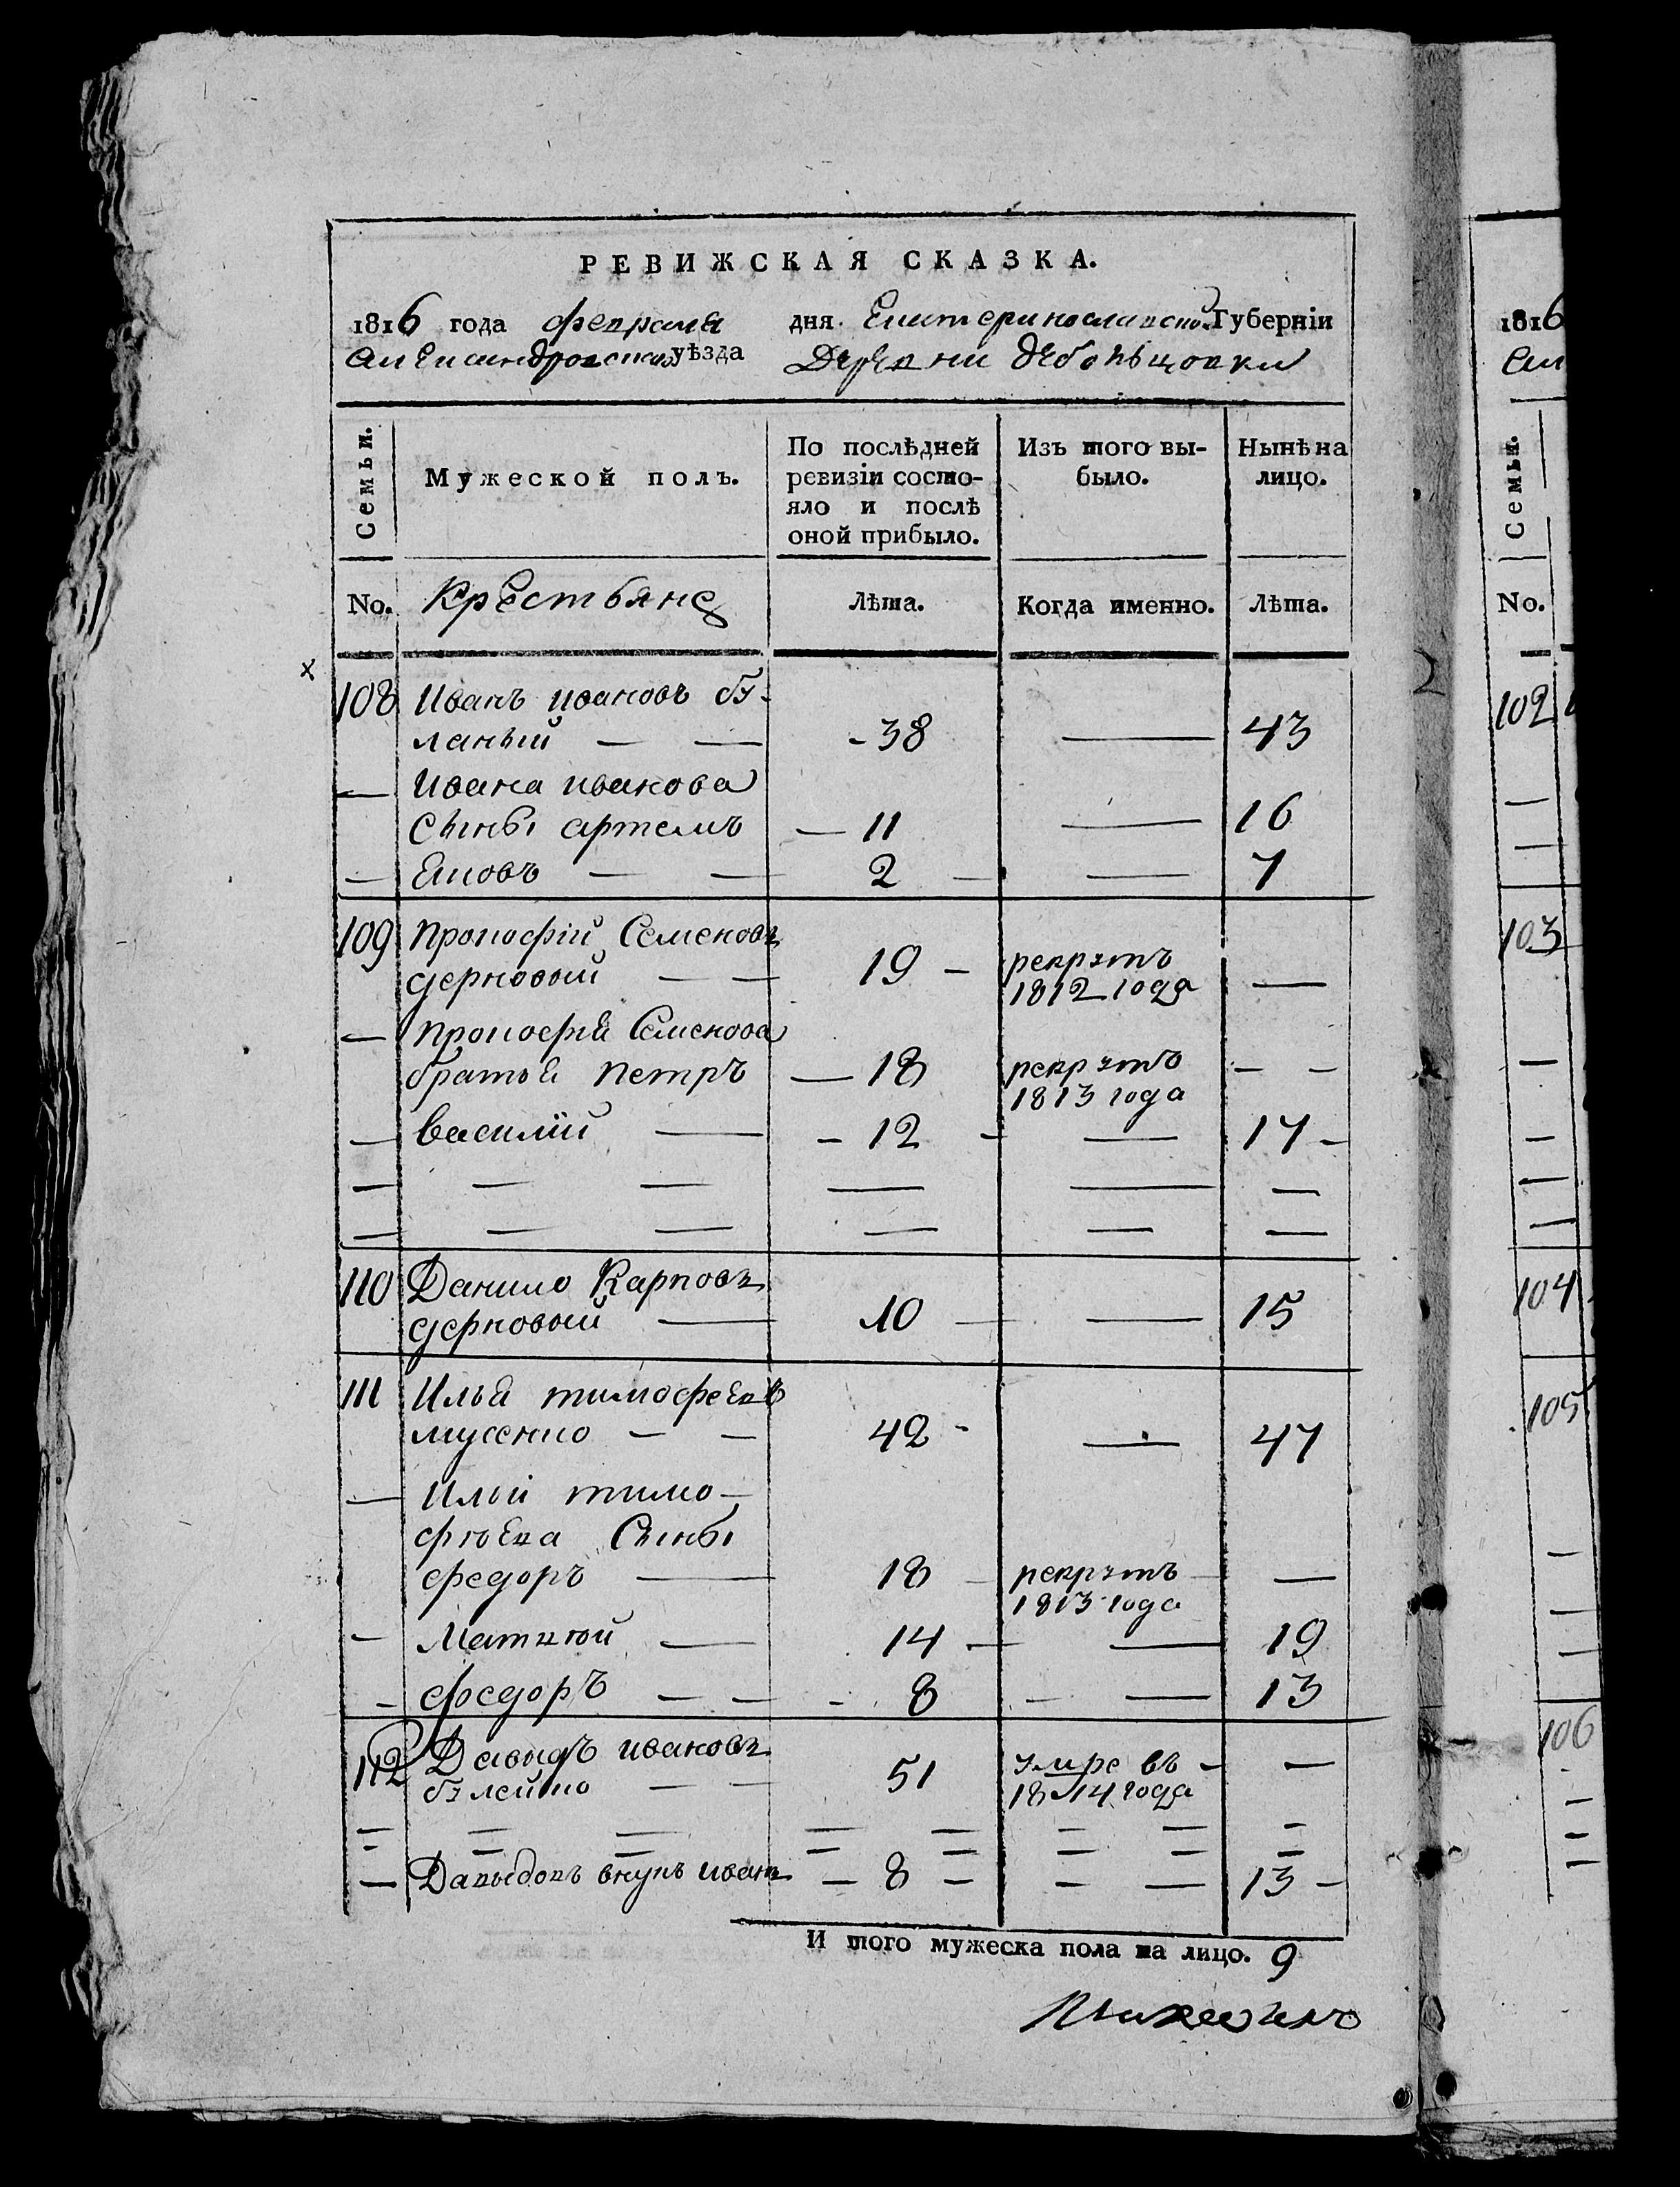 РЕВИЖСКАЯ СКАЗКА.
1816 года февраля дня Екатеринославской Губерніи
Александровскаго уѣзда Деревни
Семьи. Мужеской полъ. По послѣдней ревизіи состояло и послѣ оной прибыло. Изъ того выбыло. Нынѣ на лицо.
No. Крестьяне Лѣта. Когда именно. Лѣта.
108 Иванъ ивановъ бу-
ланый — — - 38 — 43
— Ивана иванова
сыны артемъ — 11 — 16
— Яковъ — — 2 — — 7
109 Прокофій Семеновъ
дерновый — — 19 - рекрутъ
1812 года —
— Прокофія Семенова
братья Петръ — 18 рекрутъ — —
1813 года
— василій — - 12 - — 17 -
— — — — — —
— — — — — —
110 Данило Карповъ
дерновый — 10 — — 15
111 Илья тимофеевъ
мусенко — — 42 - — 47
— Ильи тимо-
фѣева Сыны
федоръ — 18 — рекрутъ — —
1813 года
— Матвѣй — 14 — — 19
- федоръ — — - 8 — — 13
112 Давыдъ ивановъ
булейко — — 51 умре въ - —
1814 года
— Давыдовъ внукъ иванъ — 8 — — — 13 -
И того мужеска пола на лицо. 9
1816
Семьи.
No.
102
103
104
105
106